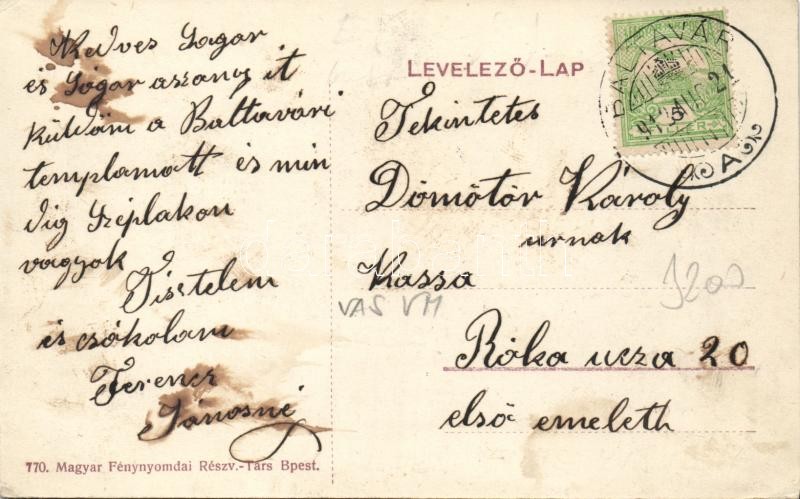 Kedves Sógor
és Sógor aszony it
küldöm a Baltavári
templamatt és min
dig Széplakon
vagyok
Tisztelem
és csókolam
Ferencz
Jánosné
770. Magyar Fénynyomdai Részv.-Társ Bpest.
LEVELEZŐ-LAP
Tekintetes
Dömötör Károly
urnak
Kassa
Róka ucza 20
első emeleth
VAS VM
3200
BALTAVÁR